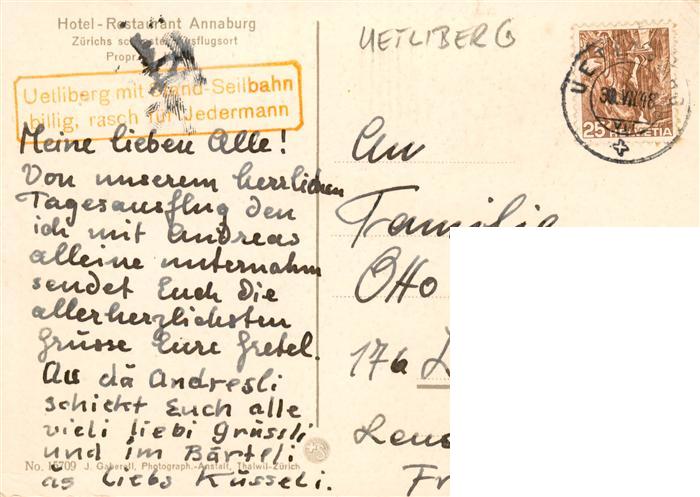 Hotel-Restaurant Annaburg
Zürichs Ausflugsort
Propr.
Uetliberg mit Seilbahn
billig, rasch für Jedermann
Meine lieben Alle!
Von unserem herrlichen
Tagesausflug den
ich mit Andreas
alleine unternahm
sendet Euch die
allerherzlichsten
Grüsse Eure Gretel.
Au dä Andresli
schickt Euch alle
vieli liebi Grüssli
und im Bärteli
äs liebs Küsseli.
No. 15709 J. Gaberell, Photograph.-Anstalt, Thalwil-Zürich
UETLIBERG
25 HELVETIA
An
Familie
Otto
17a